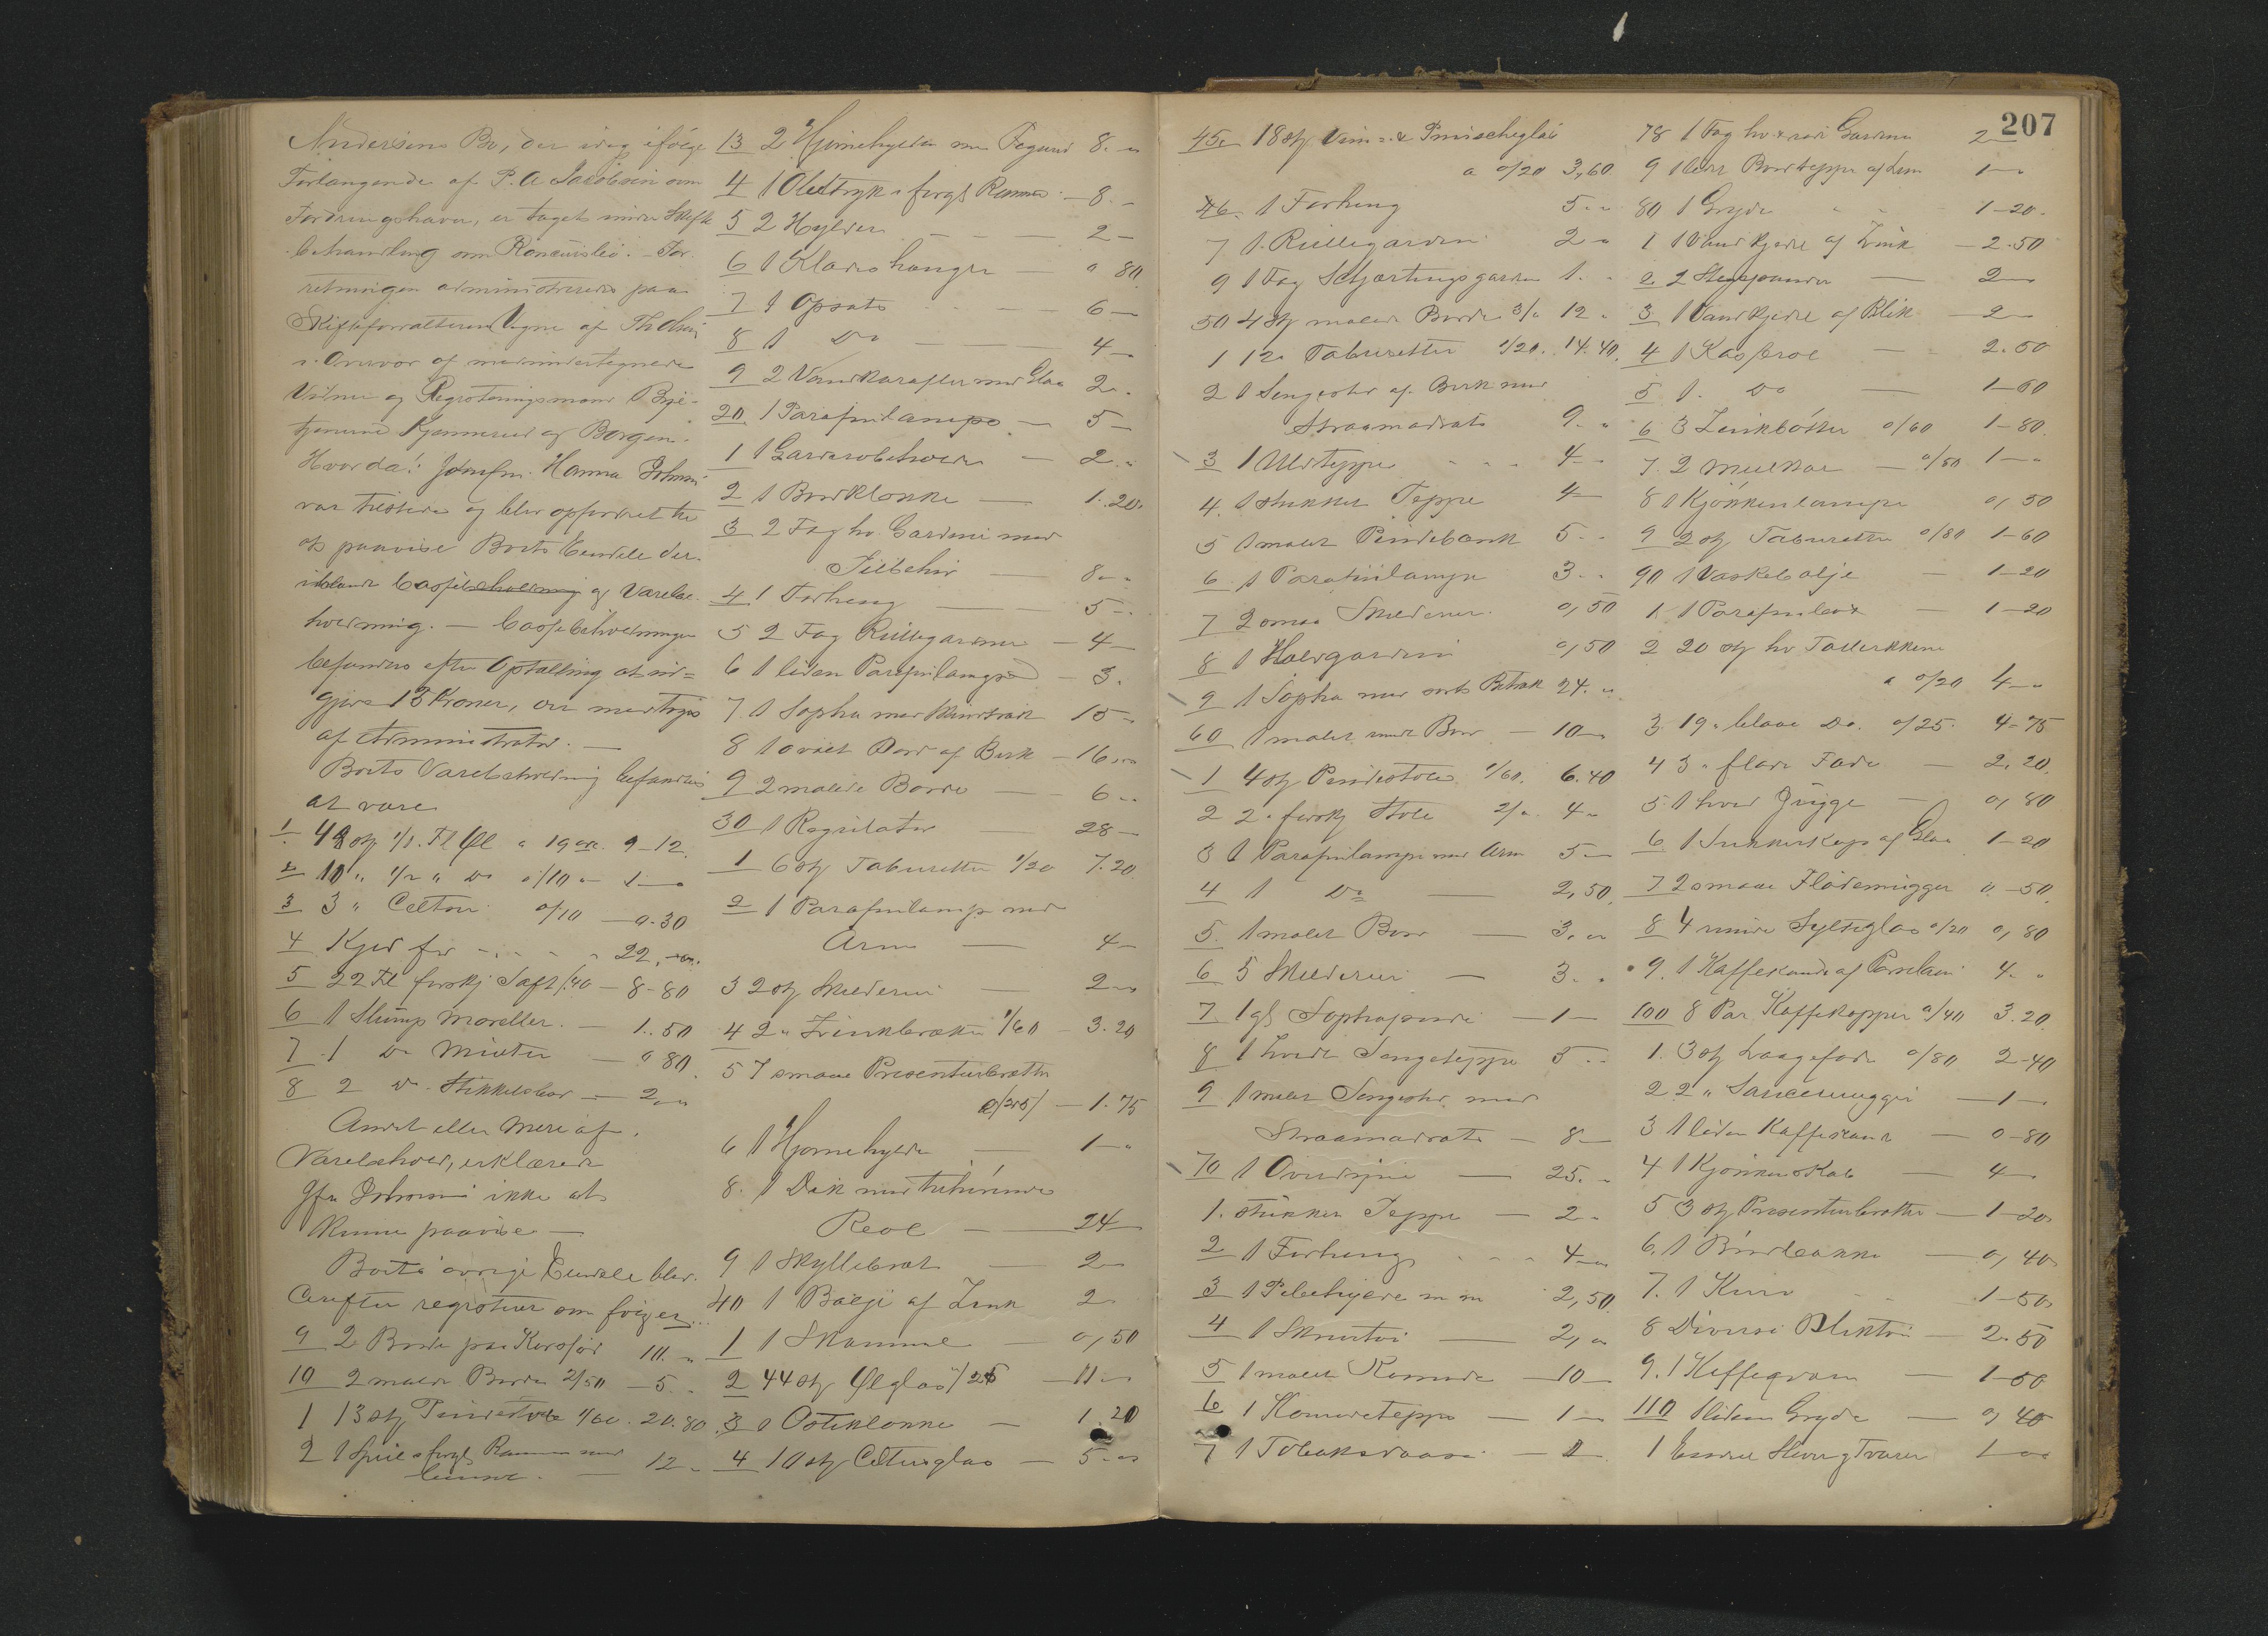 Andersens Bo, der idag ifølge
Forlangende af P. A. Jacobsen som
Fordringshaver, er taget under Skifte
behandling som Koncursbo. For
retningen administreredes paa
Skifteforvalterens Vegne af Th. Olsen
i Overvær af medundertegnede
Vidner og Registreringsmænd Byt
tjenerne Kjennerud og Borgen.
Hvorda: Jomfru Hanna Johnsen
var tilstede og blev opfordret til
at paavise Boets Eiendele der
iblandt Cassebeholdning og Varebe
holdning. — Cassebeholdningen
befandtes efter Optælling at ud=
gjøre 13 Kroner, der medtoges
af Administrator. —
Boets Varebeholdning befandtes
at være
1 48 stk 1/1 Fl Øl a 19 øre 9-12.
2 10 " 1/2 " Do a/10 - 1—"
3 3 " Selters 0/10 — 0.30
4 Kjød for - - - 22,—
5 22 Fl forskj Saft /40 — 8-80
6 1 Slump Moreller. — 1.50
7 1 Do — " 80
8 2 Do Stikkelsbær — 2,"
Andet eller mere af
Varebehold, erklærede
Jfr Johnsen ikke at
kunne paavise —
Boets øvrige Eiendele blev
derefter registreret som følger
9 2 Borde paa 10. "
10 2 malede Borde 2/50 — 5. "
1 13 stk Pindestole 1/60. 20.80
2 1 Speil i forgt Ramme med
12 "
13 2 Hjørnehylder med 8. "
4 1 Oletryk i forgt Ramme — 8. -
5 2 Hylder — 2—
6 1 Klædeshænger — " 80
7 1 Opsats — 6—
8 1 Do — 4—
9 2 Vandkarafler med Glas 2.
20. 1 Parafinlampe — 5—
1 1 Garderobeholder — 2. "
2 1 Bordklokke — 1.20.
3 2 Fag hv. Gardiner med
Tilbehør — 8—"
4 1 Forheng — 5—
5 2 Fag Rullegardiner — 4—
6 1 liden Parafinlampe — 3.
7 1 Sopha med Skindtræk 15—
8 1 ovalt Bord af Birk — 16,"
9 2 malede Borde — 6—
30 1 Regulator 28—
1 6 stk Taburetter 1/20 7.20
2 1 Parafinlampe med
Arm — 4—
3 2 stk Skilderier — 2—"
4 2 " 1/60 — 3.20
5 7 smaae Presenteerbrætter
0/25 — 1.75
6 1 Hjørnehylde — 1—"
8. 1 Disk med tilhørende
Reol — 24—
9 1 Skyllebræt — 2—
40 1 Balje af Zink 2.
1 1 Skammel — 0,50
2 44 stk Ølglas "/25 — 11—
3 1 Osteklokke — 1.20
4 10 stk Seltersglas — 5—"
207
45. 18 stk Viin- & Punscheglas
a 0/20 3,60
46. 1 Forheng 5—"
7 1 Rullegardin 2—"
9 1 Fag Schjærtingsgardin 1. -
50 4 stk malede Borde 3/" 12 "
1 12 " Taburetter 1/20. 14.40.
2 1 Sengested af Birk med
Straamadrats 9. "
3 1 Uldteppe 4—"
4. 1 stukket Teppe 4—
5 1 malet Pindebænk 5—"
6 1 Parafinlampe 3—"
7 2 smaa Skilderier 0,50
8 1 Halvgardin 0,50
9 1 Sopha med sort Betræk 24. "
60 1 malet rundt Bord — 10—"
1 4 stk Pindestole 1/60. 6.40
2 2 " forskj Stole 2/" 4—"
3 1 Parafinlampe med Arm 5—
4 1 Do — 2,50.
5. 1 malet Bord — 3,"
6 5 Skilderier — 3. "
7 1 gl Sophapude — 1—
8 1 hvidt Sengeteppe 5—"
9 1 malet Sengested med
Straamadrats — 8—
70 1 Overdyne — 25. -
1. stukket Teppe — 2—
2 1 Forheng 4—"
3 1 m m 2,50.
4 1 — 2,"
5 1 malet Komode — 10—
6 1 Komodeteppe — 1—"
7 1 Tobaksdaase —
78 1 Fag hv & rød Gardin 2"
9 1 Bordteppe af 1—"
80 1 Gryde 1-20.
1 1 Vandkjedel af Zink — 2.50
2 2 Stegepander — 2—"
3 1 Vandkjedel af Blik — 2—
4 1 Kasserol — 2.50
5 1. Do — 1-60
6 3 Zinkbøtter 0/60 1-80.
7. 2 — 0/50 1—"
8 1 Kjøkkenlampe 0,50
9 2 stk Taburetter 0/80 1-60
90 1 Vaskebalje — 1-20
1. 1 — 1-20
2 20 stk hv Tallerkkener
a 0/20 4—"
3 19 " blaae Do. 0/25. 4-75
4 3 " flade Fade — 2,20.
5 1 hvid Mugge — 0,80
6 1 Sukkerkop af Glas 1-20
7 2 smaae Flødemugger 0-50.
8 4 runde Sylteglas 0/20 0,80
9. 1 Kaffekande af Porselain 4. "
100 8 Par Kaffekopper 0/40 3.20.
1. 3 stk Laagefade 0/80 2-40
2 2 " Saucemugger — 1—
3 1 liden Kaffekande — 0-80
4 1 Kjøkkenskab — 4—
5 3 stk Presenteerbrætter — 1-20
6. 1 Brødbakke — 0,40
7. 1 Kurv 1-50
8 Diverse Bliktøi — 2.50
9. 1 Kaffeqværn — 1-50
110 1 liden Gryde — 0,40
1 1—"